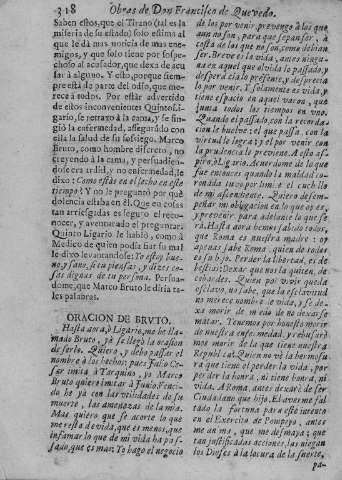 318 Obras de Don Francisco de Quevedo.
Saben estos, que el Tirano (tal es la
miseria de su estado) solo estima al
que le dà mas noticia de mas ene-
migos, y que solo tiene por sos-
pechoso al acusador, que dexa de acu-
sar à alguno. Y esto, porque siem-
pre està de parte del odio, que me-
rece à todos. Por estàr advertido
de estos inconvenientes Quinto Li-
gario, se retraxo à la cama, y se fin-
giò la enfermedad, assegurado con
ella la salud de su sosiego. Marco
Bruto, como hombre discreto, no
creyendo à la cama, y persuadien-
dose era ardid, y no enfermedad, le
dixo: Como estàs en el lecho en este
tiempo? Y no le preguntò por què
dolencia estaba en èl. Que en cosas
tan arriesgadas es seguro el reco-
nocer, y aventurado el preguntar.
Quinto Ligario le hablò, como à
Medico de quien podia fiar su mal
le dixo levantandose: Yo estoy bue-
no, y sano, si tu piensas, y dizes co-
sas dignas de tu persona. Persua-
dome, que Marco Bruto le diria ta-
les palabras.
ORACION DE BRUTO.
Hasta aora, ò Ligario, me he lla-
mado Bruto, yà se llegò la ocasion
de serlo. Quiero, y debo passar el
nombre à los hechos; pues Julio Ce-
sar imita à Tarquino, ya Marco
Bruto quiere imitar à Junio. Venci-
do he yà con las utilidades de su
muerte, las amenazas de la mia.
Mas quiero que se acorte lo que
me resta de vida, que es menos, que
infamar lo que de mi vida ha pas-
sado, que es mas: Yo hago el negocio
de los por venir, prevengo à los que
aun no son, para que sepan ser, à
costa de los que no son, como debian
ser. Breve es la vida, antes ningu-
na en aquel que olvida lo passado, y
desperdicia lo presente, y desprecia
lo por venir. Y solamente es vida, y
tiene espacio en aquel varon, que
junta todos los tiempos en uno.
Quando el passado, con la recorda-
cion le buelve: el que passa, con la
virtud le logra; y el por venir con
la prudencia le previene. A esto as-
piro, ò Ligario. Acuerdome de lo que
fue entonces quando la maldad co-
ronada tuvo por limite el cuchillo
de mi ascendiente. Quiero desem-
peñar mi obligacion en lo que oy es,
y prevenir para adelante lo que se-
rà. Hasta aora hemos sabido todos,
que Roma es nuestra madre: oy
apenas sabe Roma, quien de todos
es su hijo. Perder la libertad, es de
bestias: Dexar que nos la quiten, de
cobardes. Quien por vivir queda
esclavo, no sabe, que la esclavitud
no merece nombre de vida, y se de-
xa morir de miedo de no dexarse
matar. Tenemos por honesto morir
de nuestra enfermedad, y rehusarèmos
mos morir de la que tiene nuestra
Republica. Quien no vè la hermosu-
ra que tiene el perder la vida, por
no perder la honra, ni tiene honra, ni
vida. A Roma, antes dexarè de ser
Ciudadano que hijo. El averme fal-
tado la fortuna para este intento
en el Exercito de Pompeyo, antes
me anima, que me desmaya; que
tan justificadas acciones, las niegan
los Dioses à la locura de la suerte,
pa-